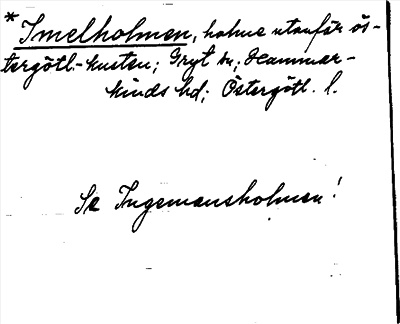 *Imelholmen, holme utanför ös-
tergötl.-kusten; Gryt sn; Hammar-
kinds hd; Östergötl. l.
Se Ingemansholmen!